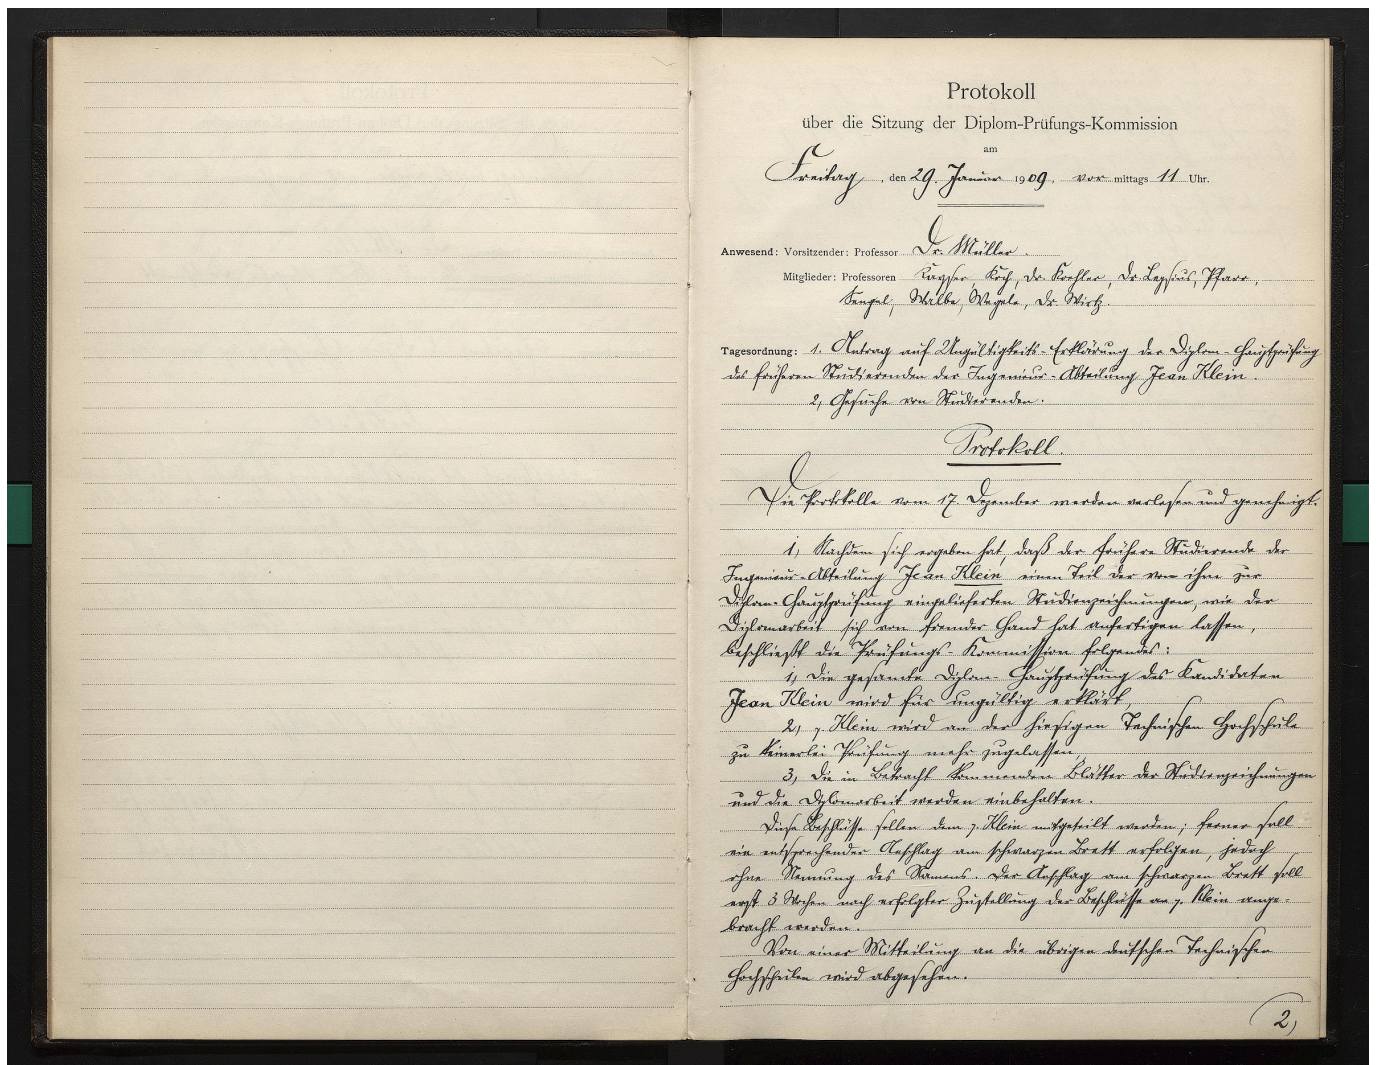 Protokoll
über die Sitzung der Diplom-Prüfungs-Kommission
am
Freitag, den 29. Januar 1909, vor mittags 11 Uhr.
Anwesend: Vorsitzender: Professor Dr. Müller.
Mitglieder: Professoren Kayser, Koch, Dr. Koehler, Dr. Lepsius, Pfarr,
Sengel, Walbe, Wegele, Dr. Wirtz.
Tagesordnung: 1. Antrag auf Ungültigkeits-Erklärung der Diplom-Hauptprüfung
des früheren Studierenden der Ingenieur-Abteilung Jean Klein.
2, Gesuche von Studierenden.
Protokoll.
Die Protokolle vom 17. Dezember werden verlesen und genehmigt.
1, Nachdem sich ergeben hat, daß der frühere Studierende der
Ingenieur-Abteilung Jean Klein einen Teil der von ihm zur
Diplom-Hauptprüfung eingelieferten Studienzeichnungen, wie der
Diplomarbeit sich von fremder Hand hat anfertigen lassen,
beschließt die Prüfungs-Kommission folgendes:
1, Die gesamte Diplom-Hauptprüfung des Kandidaten
Jean Klein wird für ungültig erklärt,
2, p. Klein wird an der hiesigen Technischen Hochschule
zu keinerlei Prüfung mehr zugelassen,
3, Die in Betracht kommenden Blätter der Studienzeichnungen
und die Diplomarbeit werden einbehalten.
Diese Beschlüsse sollen dem p. Klein mitgeteilt werden; ferner soll
ein entsprechender Anschlag am schwarzen Brett erfolgen, jedoch
ohne Nennung des Namens. Der Anschlag am schwarzen Brett soll
erst 3 Wochen nach erfolgter Zustellung der Beschlüsse an p. Klein ange-
bracht werden.
Von einer Mitteilung an die übrigen deutschen Technischen
Hochschulen wird abgesehen.
2,